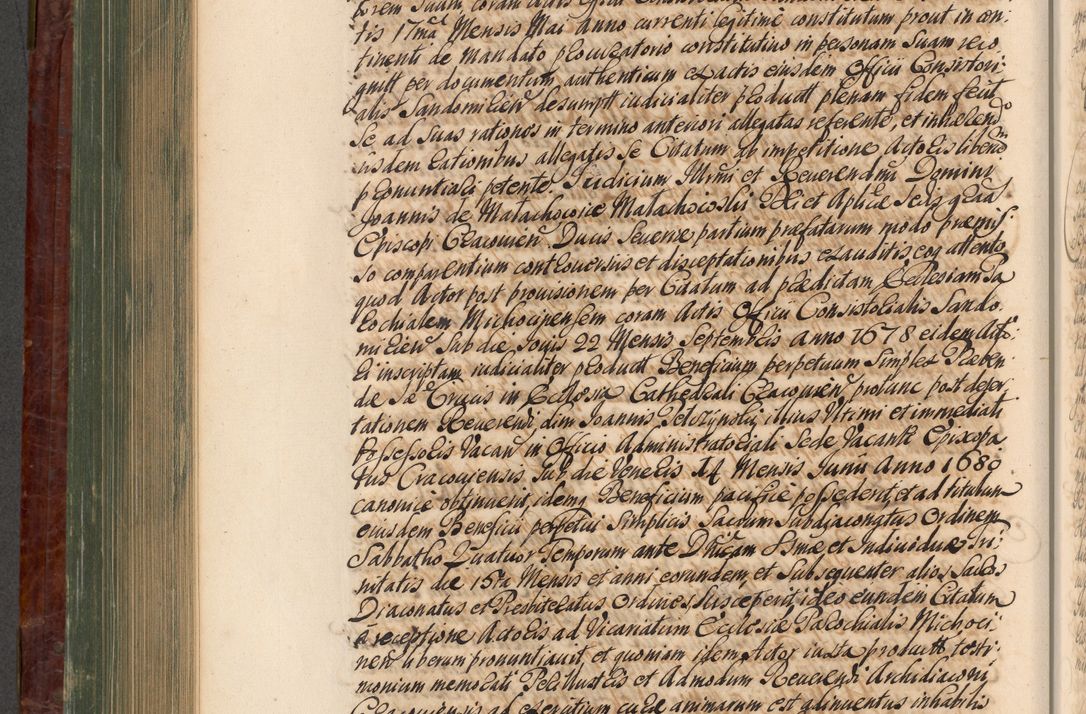 tis 17ma Mensis Mai anno currenti legitime constitutum prout in con:
tinenti de Mandato procuratorio constitutivo in personam suam reco
gnitt per documentum authenticum ex actis eiusdem Officii Consistori:
alis Sandomirien desumptt iudicialiter produxtt plenam fidem fecit
se ad suas rationes in termino anteriori allegatas referente, et inhærendo
iisdem rationibus allegatis se Citatum ab impetitione Actoris liberum
pronuntiari petente. Iudicium Illrmi et Reverendmi Domini
Joannis de Małachowice Małachowski Dei et Aplicæ Sedis gratia
Episcopi Cracovien Ducis Severiæ partium præfatarum modo præmis:
so comparentium controversiis et disceptationibus exauditis, eoq attento
quod Actor post provisionem per Citatum ad prædictam Ecclesiam Pa
rochialem Michocinensem coram Actis Officii Consistorialis Sando:
mirien sub die Jovis 22 Mensis Septembris anno 1678 eidem Acto:
ri inscriptam iudicialiter produxtt Beneficium perpetuum simplex Præben
dæ Sæ Crucis in Ecclesia Cathedrali Cracovien protunc post deser
tationem Reverendi olim Joannis illius Ultimi et immediati
Possessoris Vacan in Officio Administratoriali Sede Vacante Episcopa
tus Cracoviensis sub die Veneris 14 Mensis Junii Anno 1680
canonice obtinuerit, idemq Beneficium pacifice possederit, et ad titulum
eiusdem Beneficii perpetui simplicis Sacrum Subdiaconatus Ordinem
Sabbatho Quatuor Temporum ante Dnicam Ssmæ et Individuæ Tri:
nitatis die 15ta Mensis et anni eorundem et subsequenter alios Sacros
Diaconatus et Presbiteratus Ordines susceperit, ideo eundem Citatum
a receptione Actoris ad Vicariatum Ecclesiæ Parochialis Michoci:
nen liberum pronuntiavit, et quoniam idem Actor iuxta productt testi:
monium memorati Perillustris et Admodum Reverendi Archidiaconi
Cracoviensis ad exercitium curæ animarum est adinventus inhabilis